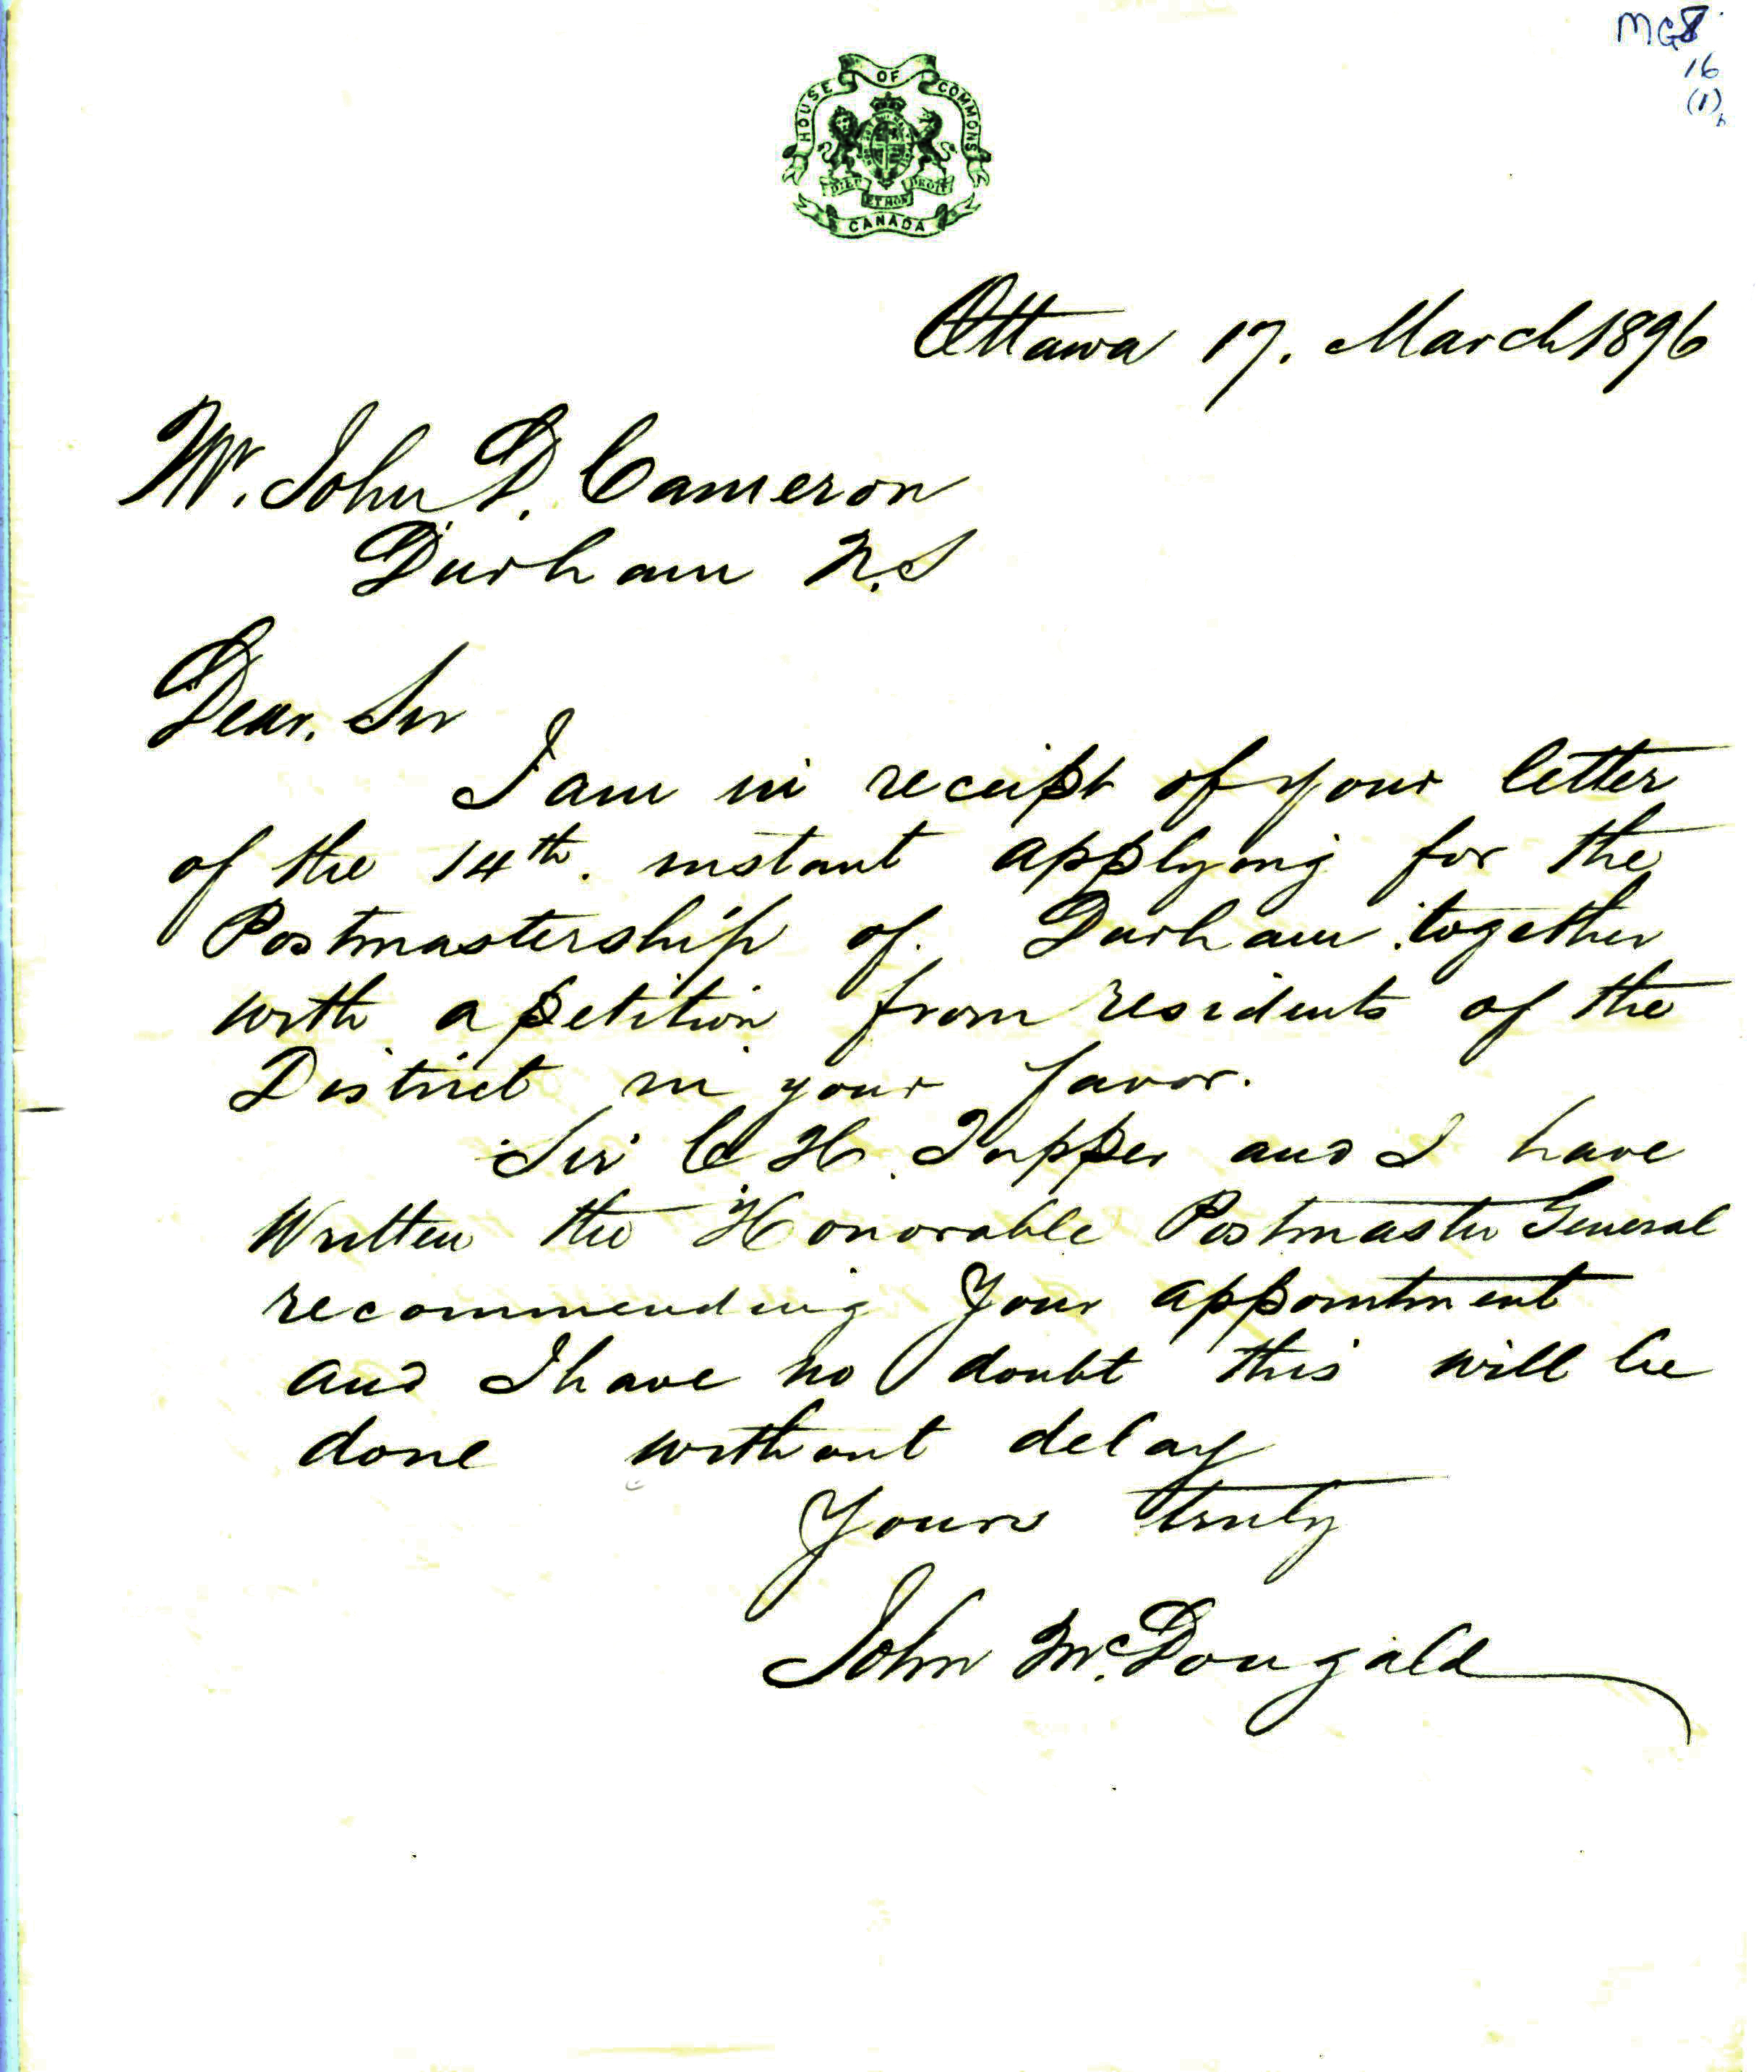 MG8
16
(1)
HOUSE OF COMMONS
DIEU ET MON DROIT
CANADA
Ottawa 17. March 1896
Mr. John D. Cameron
Durham N.S
Dear. Sir
I am in receipt of your letter
of the 14th. instant applying for the
Postmastership of. Durham together
with a petition from residents of the
District in your favor.
Sir C H. Tupper and I have
Written the Honorable Postmaster General
recommending Your appointment
and I have no doubt this will be
done without delay
Yours truly
John McDougald